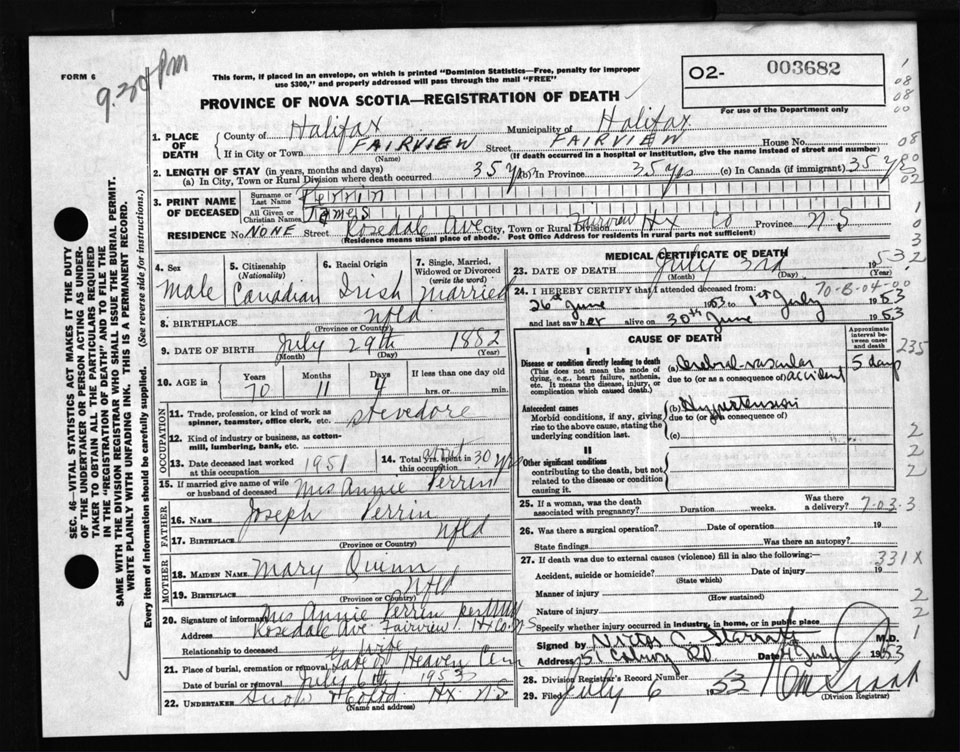 FORM 6
9.30 PM
This form, if placed in an envelope, on which is printed "Dominion Statistics—Free, penalty for improper
use $300," and properly addressed will pass through the mail "FREE"
PROVINCE OF NOVA SCOTIA—REGISTRATION OF DEATH
O2- 003682
For use of the Department only
1. PLACE OF DEATH
County of Halifax Municipality of Halifax
If in City or Town FAIRVIEW Street FAIRVIEW House No.
(Name) (If death occurred in a hospital or institution, give the name instead of street and number)
2. LENGTH OF STAY (in years, months and days)
(a) In City, Town or Rural Division where death occurred 35 yrs (b) In Province 35 yrs (c) In Canada (if immigrant) 35 yrs
3. PRINT NAME OF DECEASED
Surname or Last Name Perrin
All Given or Christian Names James
RESIDENCE No. NONE Street Rosedale Ave City, Town or Rural Division Fairview Hx Co Province N.S
(Residence means usual place of abode. Post Office Address for residents in rural parts not sufficient)
4. Sex Male
5. Citizenship (Nationality) Canadian
6. Racial Origin Irish
7. Single, Married, Widowed or Divorced (write the word) Married
8. BIRTHPLACE Nfld
(Province or Country)
9. DATE OF BIRTH July 29th 1882
(Month) (Day) (Year)
10. AGE in Years 70 Months 11 Days 4 If less than one day old
hrs. or min.
OCCUPATION
11. Trade, profession, or kind of work as spinner, teamster, office clerk, etc. Stevedore
12. Kind of industry or business, as cotton-mill, lumbering, bank, etc.
13. Date deceased last worked at this occupation 1951
14. Total yrs. spent in this occupation about 30 yrs
15. If married give name of wife or husband of deceased Mrs Annie Perrin
FATHER
16. Name Joseph Perrin
17. Birthplace Nfld
(Province or Country)
MOTHER
18. Maiden Name Mary Quinn
19. Birthplace Nfld
(Province or Country)
20. Signature of informant Mrs Annie Perrin
Address Rosedale Ave Fairview Hx Co. N S
Relationship to deceased wife
21. Place of burial, cremation or removal Gate of Heaven Cem
Date of burial or removal July 6th, 1953
22. UNDERTAKER Hx. N.S
(Name and address)
MEDICAL CERTIFICATE OF DEATH
23. DATE OF DEATH July 3rd 1953
(Month) (Day) (Year)
70-8-04-00
24. I HEREBY CERTIFY that I attended deceased from:
26th June 1953 to 1st July 1953
and last saw her alive on 30th June 1953
CAUSE OF DEATH
Approximate interval between onset and death
I
Disease or condition directly leading to death
(This does not mean the mode of dying, e.g., heart failure, asthenia, etc. It means the disease, injury, or complication which caused death.)
(a) Cerebral-vascular accident 5 days
due to (or as a consequence of)
Antecedent causes
Morbid conditions, if any, giving rise to the above cause, stating the underlying condition last.
(b) Hypertension
due to (or as a consequence of)
(c)
II
Other significant conditions
contributing to the death, but not related to the disease or condition causing it.
25. If a woman, was the death associated with pregnancy? Duration weeks. Was there a delivery?
7-03-3
26. Was there a surgical operation? Date of operation 19
State findings Was there an autopsy?
27. If death was due to external causes (violence) fill in also the following:—
331X
Accident, suicide or homicide? Date of injury 19
(State which)
Manner of injury
(How sustained)
Nature of injury
Specify whether injury occurred in industry, in home, or in public place
Signed by C. M.D.
Address Rd Date 4 July 1953
28. Division Registrar's Record Number
29. Filed July 6 1953
(Division Registrar)
SEC. 46—VITAL STATISTICS ACT MAKES IT THE DUTY
OF THE UNDERTAKER OR PERSON ACTING AS UNDER-
TAKER TO OBTAIN ALL THE PARTICULARS REQUIRED
IN THE "REGISTRATION OF DEATH" AND TO FILE THE
SAME WITH THE DIVISION REGISTRAR WHO SHALL ISSUE THE BURIAL PERMIT.
WRITE PLAINLY WITH UNFADING INK. THIS IS A PERMANENT RECORD.
Every item of information should be carefully supplied. (See reverse side for instructions.)